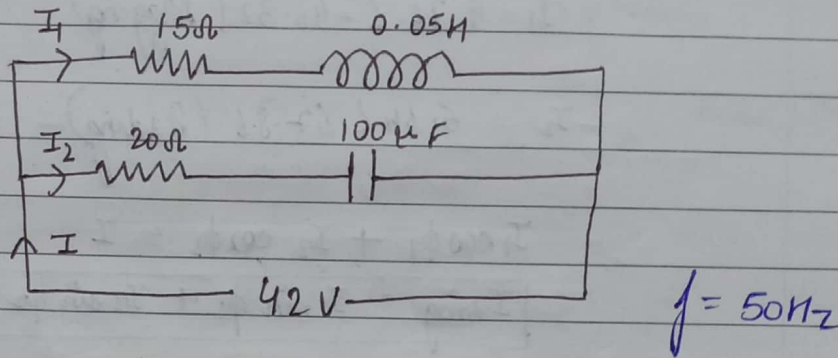 I₁ 15Ω 0.05H
I₂ 20Ω 100μF
I
42V
f = 50Hz